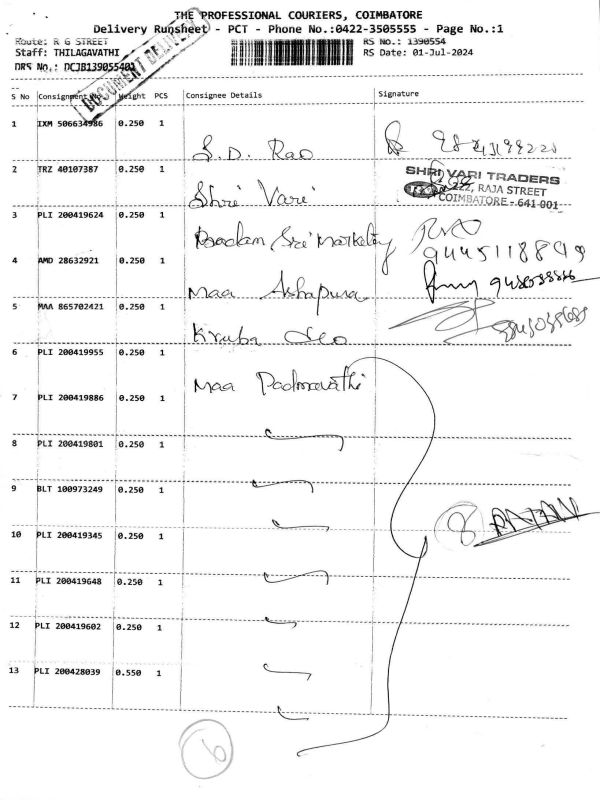 THE PROFESSIONAL COURIERS, COIMBATORE
Delivery Runsheet - PCT - Phone No.:0422-3505555 - Page No.:1
Route: R G STREET RS No.: 1390554
Staff: THILAGAVATHI RS Date: 01-Jul-2024
DRS No.: DCJB139055401
DOCUMENT DELIVERY
S No Consignment No. Weight PCS Consignee Details Signature
1 IXM 506634986 0.250 1
S.D. Rao
2 TRZ 40107387 0.250 1
SHRI VARI TRADERS
222, RAJA STREET
COIMBATORE - 641 001
Shri Vari
3 PLI 200419624 0.250 1
Sri Marketing 9445118849
4 AMD 28632921 0.250 1
Maa Ashapura
5 MAA 865702421 0.250 1
Kruba
6 PLI 200419955 0.250 1
Maa Padmavathi
7 PLI 200419886 0.250 1
8 PLI 200419801 0.250 1
9 BLT 100973249 0.250 1
8
10 PLI 200419345 0.250 1
11 PLI 200419648 0.250 1
12 PLI 200419602 0.250 1
13 PLI 200428039 0.550 1
6